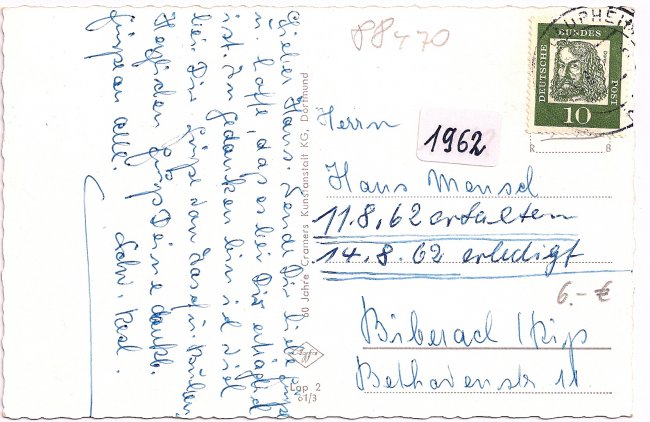 Lieber Hans. Sende Dir liebe Grüße
u. hoffe, daß es bei Dir erträglich
ist. In Gedanken bin ich viel
bei Dir. Grüße an
Herzlichen Gruß Deine dankb.
Grüße an alle.
60 Jahre Cramers Kunstanstalt KG, Dortmund
Lap 2
61/3
PP470
UPHEIM
DEUTSCHE BUNDES POST
10
1962
R B
Herrn
Hans Mensel
11.8.62 erhalten
14.8.62 erledigt
6.- €
Biberach / Riß
Bethovenstr 11.